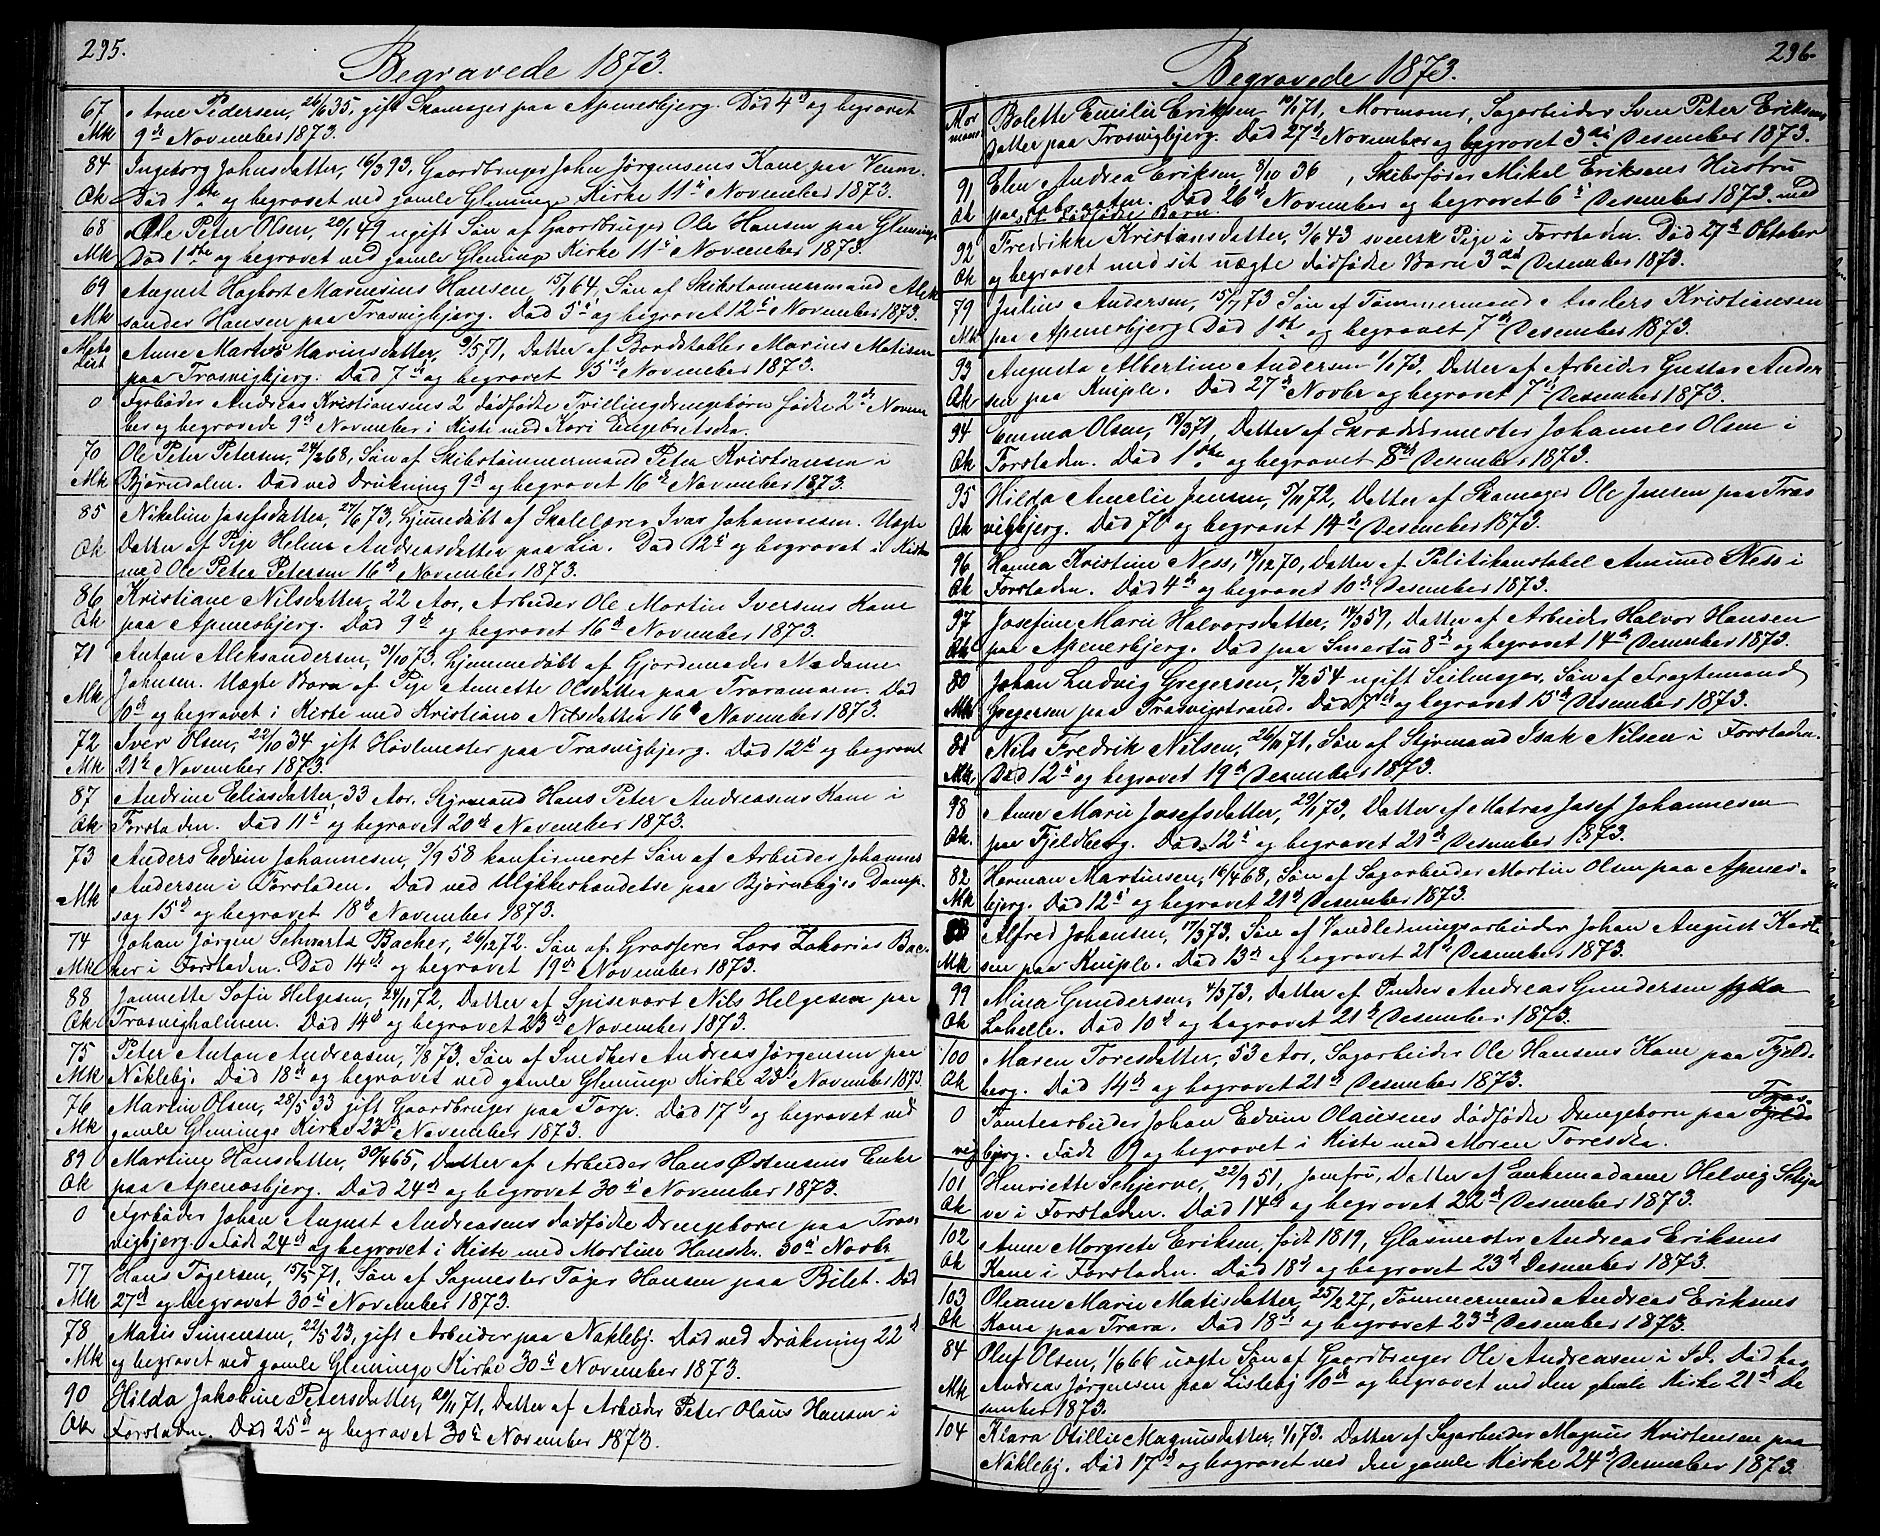 295.
Begravede 1873.
67 Arne Pedersen, 26/6 35, gift Skomager paa Apenesbjerg. Død 4de og begravet
Mk 9de November 1873.
84 Ingeborg Johnsdatter, 16/3 93, Gaardbruger John Jørgensens Kone paa Veum.
Qk Død 1ste og begravet ved gamle Glemminge Kirke 11te November 1873.
68 Ole Peter Olsen, 20/1 49 ugift Søn af Gaardbruger Ole Hansen paa Glemminge
Mk Død 1ste og begravet ved gamle Glemminge Kirke 11te November 1873.
69 August Hagbart Marnesius Hansen, 15/1 64, Søn af Skibstømmermand Alek
Mk sander Hansen paa Trosvigbjerg. Død 5te og begravet 12te November 1873.
Meto dist Anne Marie Marinsdatter, 9/5 71, Datter af Bordstabler Marius Matisen
paa Trosvigbjerg. Død 7de og begravet 15de November 1873.
0 Fyrbøder Andreas Kristiansens 2 dødfødte Tvillingdrengebørn fødte 2den Novem
ber og begravede 9de November i Kiste med Kari Engebretsda.
70 Ole Peter Petersen, 24/2 68, Søn af Skibstømmermand Peter Kristiansen i
Mk Bjørndalen. Død ved Drukning 9de og begravet 16de November 1873.
85 Nikoline Josefsdatter, 27/6 73, hjemmedøbt af Skolelærer Ivar Johannesen. Uægte
Qk Datter af Pige Helene Andreasdatter paa Lia. Død 12te og begravet i Kiste
med Ole Peter Petersen 16de November 1873.
86 Kristiane Nilsdatter, 22 Aar, Arbeider Ole Martin Iversens Kone
Qk paa Apenesbjerg. Død 9de og begravet 16de November 1873.
71 Anton Aleksandersen, 31/10 73. hjemmedøbt af Gjordemoder Madame
Mk Johnsen. Uægte Barn af Pige Annette Olsdatter paa Traramoen. Død
10de og begravet i Kiste med Kristiane Nilsdatter 16de November 1873.
72 Iver Olsen, 22/10 34 gift Høvlmester paa Trosvigbjerg. Død 12te og begravet
Mk 21de November 1873.
87 Andrine Eliasdatter, 33 Aar, Styrmand Hans Peter Andreasens Kone i
Qk Forstaden. Død 11te og begravet 20de November 1873.
73 Anders Edvin Johannesen, 9/9 58 konfirmeret Søn af Arbeider Johannes
Mk Andersen i Forstaden. Død ved Ulykkeshændelse paa Bjørnebyes Damp-
sag 15de og begravet 18de November 1873.
74 Johan Jørgen Schvarts Backer, 26/12 72. Søn af Grosserer Lars Zakarias Bac-
Mk ker i Forstaden. Død 14de og begravet 19de November 1873.
88 Jannette Sofie Helgesen, 24/11 72, Datter af Spisevært Nils Helgesen paa
Qk Trosvigholmen. Død 14de og begravet 23de November 1873.
75 Peter Anton Andreasen, 7/8 73. Søn af Snedker Andreas Jørgensen paa
Mk Naklebj. Død 18de og begravet ved gamle Glemminge Kirke 23de November 1873.
76 Martin Olsen, 28/5 33 gift Gaardbruger paa Torp. Død 17de og begravet ved
Mk gamle Glemminge Kirke 23de November 1873.
89 Martine Hansdatter, 30/4 65, Datter af Arbeider Hans Østensens Enke
Qk paa Apenesbjerg. Død 24de og begravet 30te November 1873.
0 Fyrbøder Johan August Andreasens dødfødte Drengebarn paa Tros-
vigbjerg. Født 24de og begravet i Kiste med Martine Hansda. 30te Novbr
77 Hans Tøgersen, 15/5 71, Søn af Sagmester Tøger Hansen paa Bilet. Død
Mk 27de og begravet 30te November 1873.
78 Matis Simensen, 22/5 23, gift Arbeider paa Naklebj. Død ved Drukning 22de
Mk og begravet ved gamle Glemminge Kirke 30te November 1873.
90 Hilda Jakobine Petersdatter, 20/11 71, Datter af Arbeider Peter Olaus Hansen i
Qk Forstaden. Død 25de og begravet 30te November 1873.
296.
Begravede 1873.
Mor moner Bolette Emilie Eriksen 10/1 71, Mormoner, Sagarbeider Sven Peter Eriksens
Datter paa Trosvigbjerg. Død 27de November og begravet 3die Desember 1873.
91 Elen Andrea Eriksen, 8/10 36, Skibsfører Mikel Eriksens Hustru
Qk paa Labraaten. Død 26de November og begravet 6te Desember 1873. med
et dødfødte Barn.
92 Fredrikke Kristiansdatter, 9/6 43 svensk Pige i Forstaden. Død 27de Oktober
Qk og begravet med sit uægte dødfødte Barn 3die Desember 1873.
79 Julius Andersen, 15/7 73 Søn af Tømmermand Anders Kristiansen
Mk paa Apenesbjerg Død 1ste og begravet 7de Desember 1873.
93 Augusta Albertine Andersen 1/1 73, Datter af Arbeider Gustav Ander
Qk sen paa Kniple. Død 27de Novbr og begravet 7de Desember 1873.
94 Emma Olsen, 18/3 71, Datter af Skræddermester Johannes Olsen i
Qk Forstaden. Død 1ste og begravet 8de Desember 1873.
95 Hilda Amelie Jensen, 5/11 72, Datter af Skomager Ole Jensen paa Tros
Qk vigbjerg. Død 7de og begravet 14de Desember 1873.
96 Hanna Kristine Ness, 14/12 70, Datter af Politikonstabel Amund Ness i
Qk Forstaden. Død 4de og begravet 10de Desember 1873.
97 Josefine Marie Halvorsdatter, 14/3 57, Datter af Arbeider Halvor Hansen
Qk paa Apenesbjerg. Død paa Smertu 8de og begravet 14de Desember 1873.
80 Johan Ludvig Gregersen, 4/2 54 ugift Seilmager, Søn af Fragtemand
Mk Gregersen paa Trosvigstrand. Død 7de og begravet 15de Desember 1873.
81 Nils Fredrik Nilsen, 26/10 71, Søn af Styrmand Isak Nilsen i Forstaden.
Mk Død 12te og begravet 19de Desember 1873.
98 Anne Marie Josefsdatter, 29/1 73, Datter af Matros Josef Johannesen
Qk. paa Fjeldberg. Død 12te og begravet 21de Desember 1873.
82 Herman Martinsen, 16/4 68, Søn af Sagarbeider Martin Olsen paa Apenes-
Mk bjerg. Død 12te og begravet 21de Desember 1873.
83 Alfred Johansen, 17/3 73, Søn af Vandledningsarbeider Johan August Karl
Mk sen paa Kniple. Død 13de og begravet 21de Desember 1873.
99 Mina Gundersen, 4/3 73, Datter af Pudser Andreas Gundersen
Qk Labelle. Død 10de og begravet 21de Desember 1873.
100 Maren Toresdatter, 53 Aar, Sagarbeider Ole Hansens Kone paa Fjeld-
Qk berg. Død 14de og begravet 21de Desember 1873.
0 Tomtearbeider Johan Edvin Olausens dødfødte Drengebarn paa Fjeld Tros-
vigbjerg. Født 9 og begravet i Kiste med Maren Toresda.
101 Henriette Schjerve, 22/9 51, Jomfru, Datter af Enkemadame Helvig Schjer
Qk ve i Forstaden. Død 14de og begravet 22de Desember 1873.
102 Anne Margrete Eriksen, født 1819, Glasmester Andreas Eriksens
Qk Kone i Forstaden. Død 18de og begravet 23de Desember 1873.
103 Oleane Marie Matisdatter, 25/2 27, Tømmermand Andreas Eriksens
Qk Kone paa Trara. Død 18de og begravet 23de Desember 1873.
84 Oluf Olsen, 1/6 66 uægte Søn af Gaardbruger Ole Andreasen i S.d. Død hos
Mk Andreas Jørgensen paa Lislebj 10de og begravet ved den gamle Kirke 21de De
sember 1873.
104 Klara Otillie Magnusdatter, 1/1 73. Datter af Sagarbeider Magnus Kristensen paa
Naklebj. Død 17de og begravet ved den gamle Kirke 24de Desember 1873.